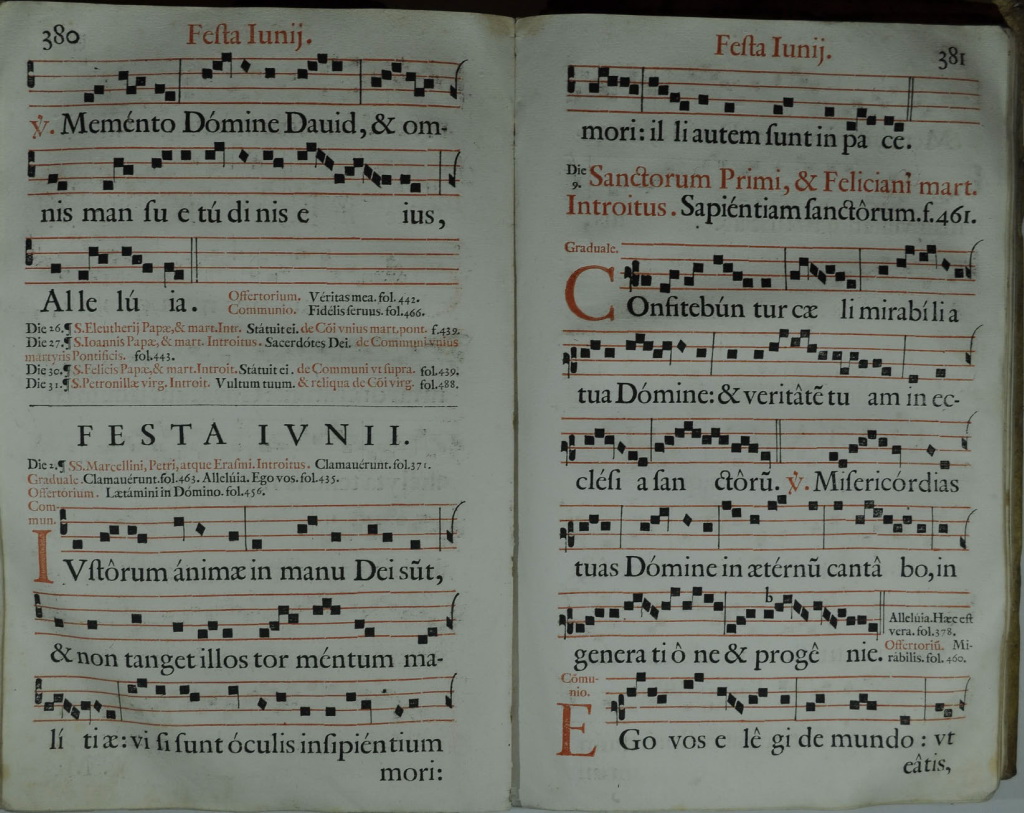 380
Festa Iunij.
℣. Meménto Dómine Dauid, & om-
nis man su e tú di nis e ius,
Al le lú ia. Offertorium. Véritas mea. fol. 442.
Communio. Fidélis seruus. fol. 466.
Die 26.¶ S. Eleutherij Papæ, & mart. Intr. Státuit ei. de Cõi vnius mart. pont. f. 439.
Die 27.¶ S. Ioannis Papæ, & mart. Introitus. Sacerdótes Dei. de Communi vnius
martyris Pontificis. fol. 443.
Die 30.¶ S. Felicis Papæ, & mart. Introit. Státuit ei. de Communi vt supra. fol. 439.
Die 31.¶ S. Petronillæ virg. Introit. Vultum tuum. & reliqua de Cõi virg. fol. 488.
FESTA IVNII.
Die 2.¶ SS. Marcellini, Petri, atque Erasmi. Introitus. Clamauérunt. fol. 371.
Graduale. Clamauérunt. fol. 463. Allelúia. Ego vos. fol. 435.
Offertorium. Lætámini in Dómino. fol. 456.
Com-
mun.
IVstôrum ánimæ in manu Dei sũt,
& non tanget illos tor méntum ma-
lí ti æ: vi si sunt óculis insipiéntium
mori:
Festa Iunij.
381
mori: il li autem sunt in pa ce.
Die
9. Sanctorum Primi, & Feliciani mart.
Introitus. Sapiéntiam sanctôrum. f. 461.
Graduale.
COnfitebún tur cæ li mirabíli a
tua Dómine: & veritâtẽ tu am in ec-
clési a san ctôrũ. ℣. Misericórdias
tuas Dómine in ætérnũ cantâ bo, in
b
genera ti ô ne & progê nie.
Allelúia. Hæc est
vera. fol. 378.
Offertoriũ. Mi-
rábilis. fol. 460.
Cómu-
nio.
EGo vos e lê gi de mundo : vt
eâtis,